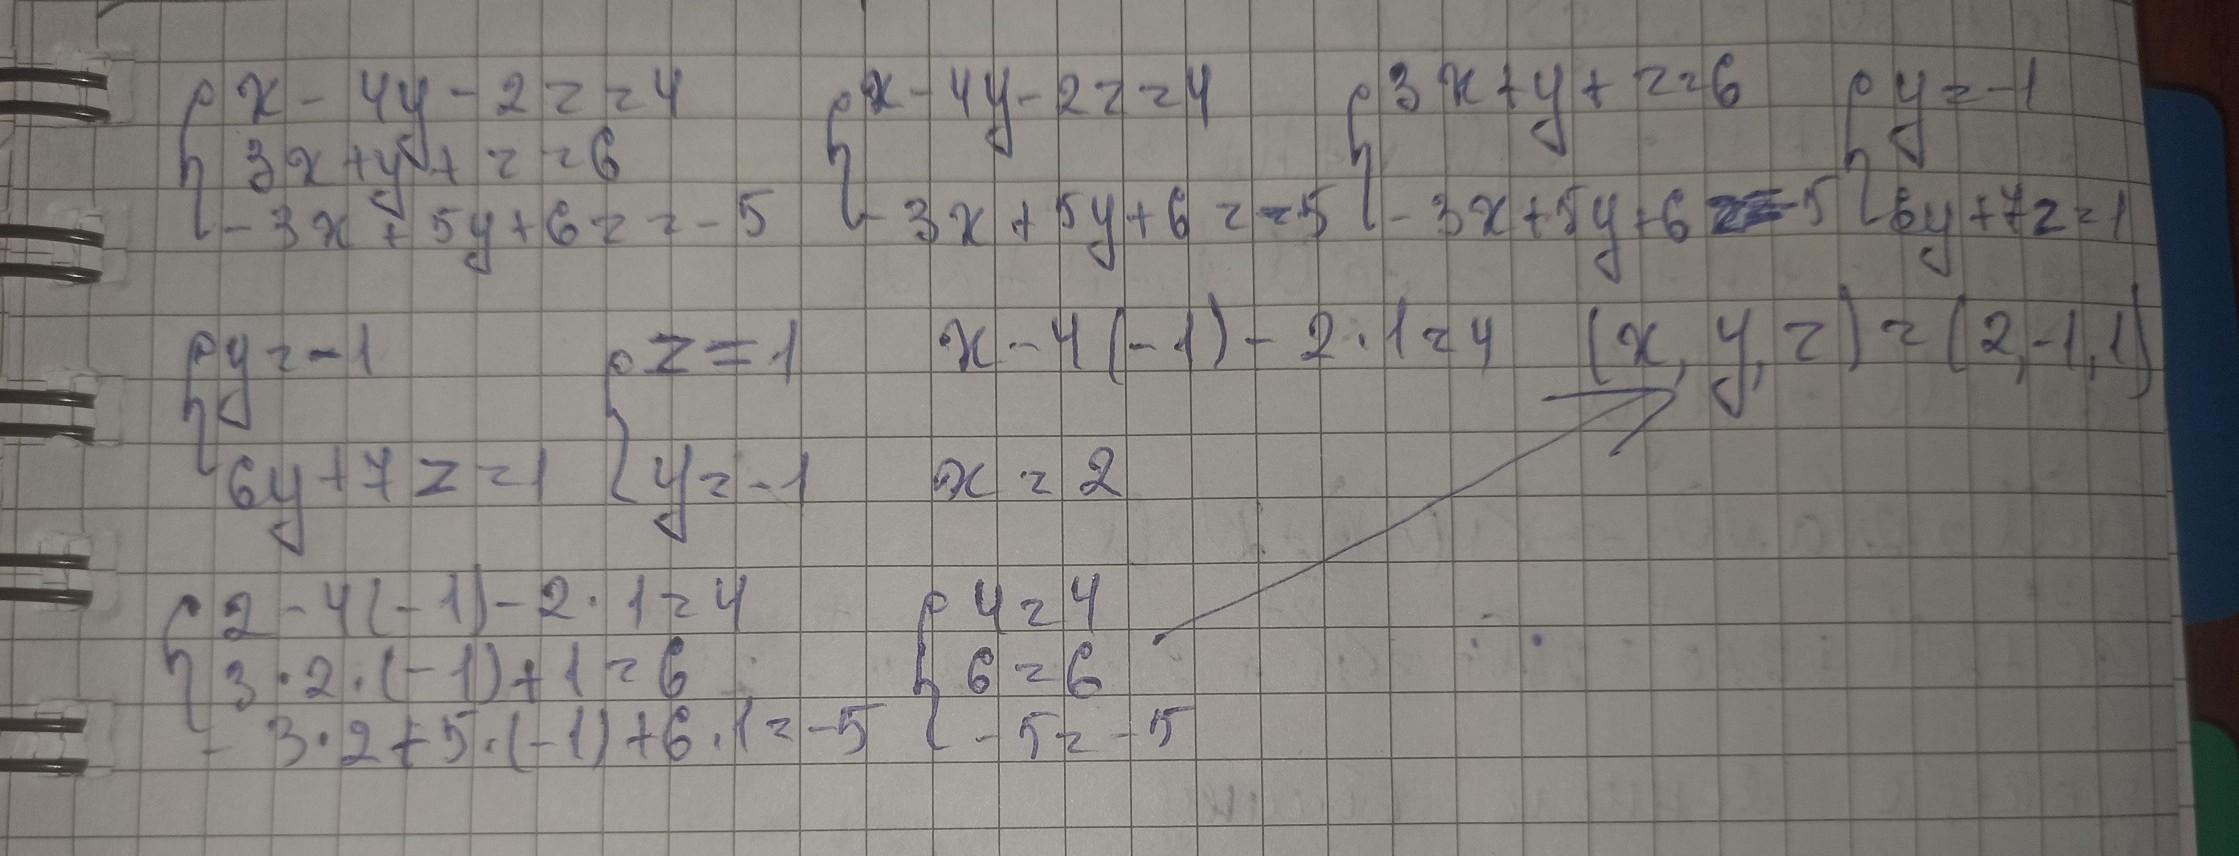 x - 4y - 2z = 4
3x + y + z = 6
-3x + 5y + 6z = -5
x - 4y - 2z = 4
-3x + 5y + 6z = -5
3x + y + z = 6
-3x + 5y + 6z = -5
y = -1
6y + 7z = 1
y = -1
6y + 7z = 1
z = 1
y = -1
x - 4(-1) - 2·1 = 4
x = 2
(x, y, z) = (2, -1, 1)
2 - 4(-1) - 2·1 = 4
3·2·(-1) + 1 = 6
-3·2 + 5·(-1) + 6·1 = -5
4 = 4
6 = 6
-5 = -5